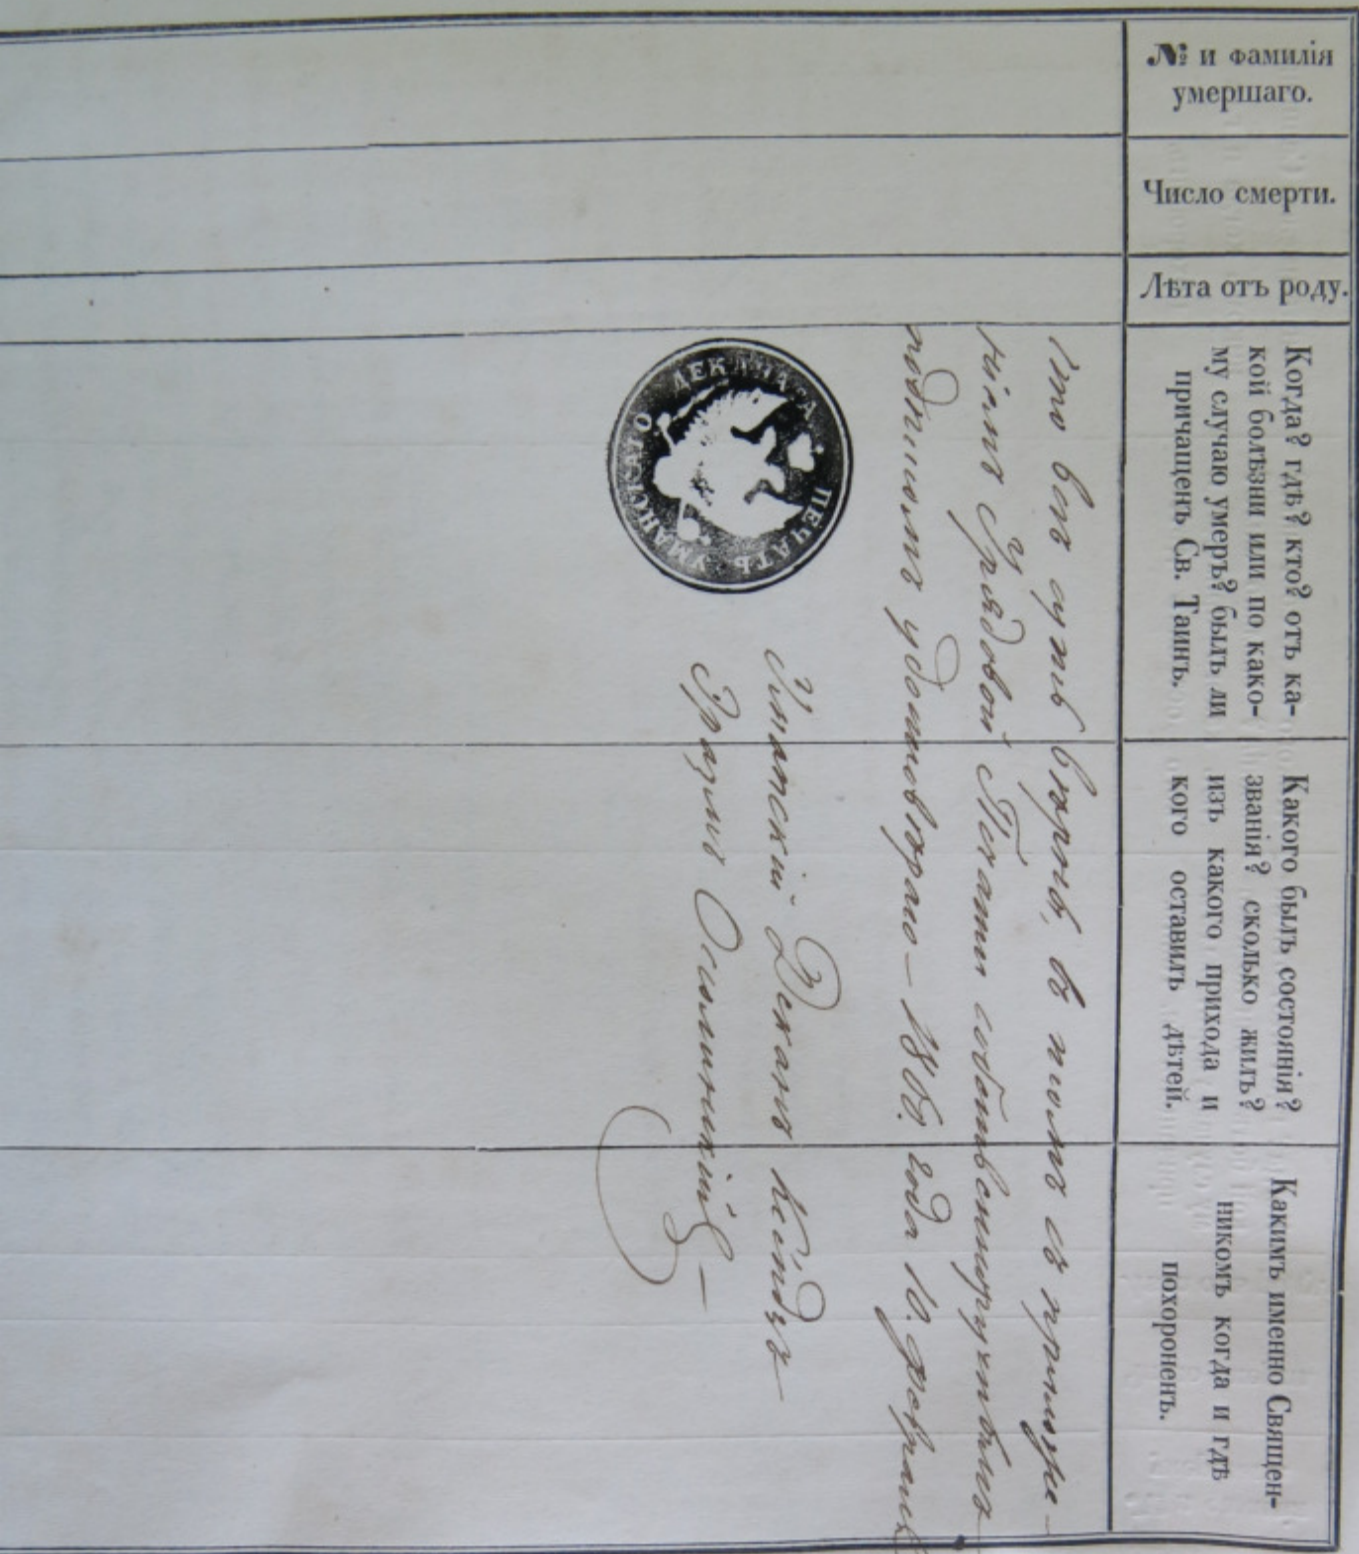 № и фамилія
умершаго.
Число смерти.
Лѣта отъ роду.
Когда? гдѣ? кто? отъ ка-
кой болѣзни или по како-
му случаю умеръ? былъ ли
причащенъ Св. Таинъ.
Какого былъ состоянія?
званія? сколько жилъ?
изъ какого прихода и
кого оставилъ дѣтей.
Какимъ именно Священ-
никомъ когда и гдѣ
похороненъ.
что всѣ суть вѣрны, въ томъ съ приложе-
ніемъ Урядовой Печати собственноручнымъ
подписомъ удостовѣряю — года 10. февраля
ПЕЧАТЬ УМАНСКАГО ДЕКАНАТА
Уманскій Деканъ Ксіндзъ